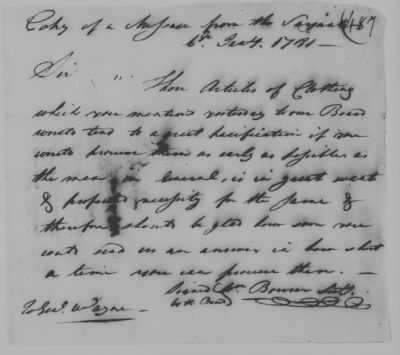 Copy of a Message from the Serjeants 187
6th Jany. 1781 —
Sir Those Articles of Clothing
which you mention'd yesterday to our Board
would tend to a great pacification if you
would procure them as early as possible, as
the men in General, is in great want
& perfect necessity for the same &
therefore should be glad how soon you
could send us an answer in how short
a time you can procure them. —
Signed Wm Bowzer Secy.
To Genl. Wayne